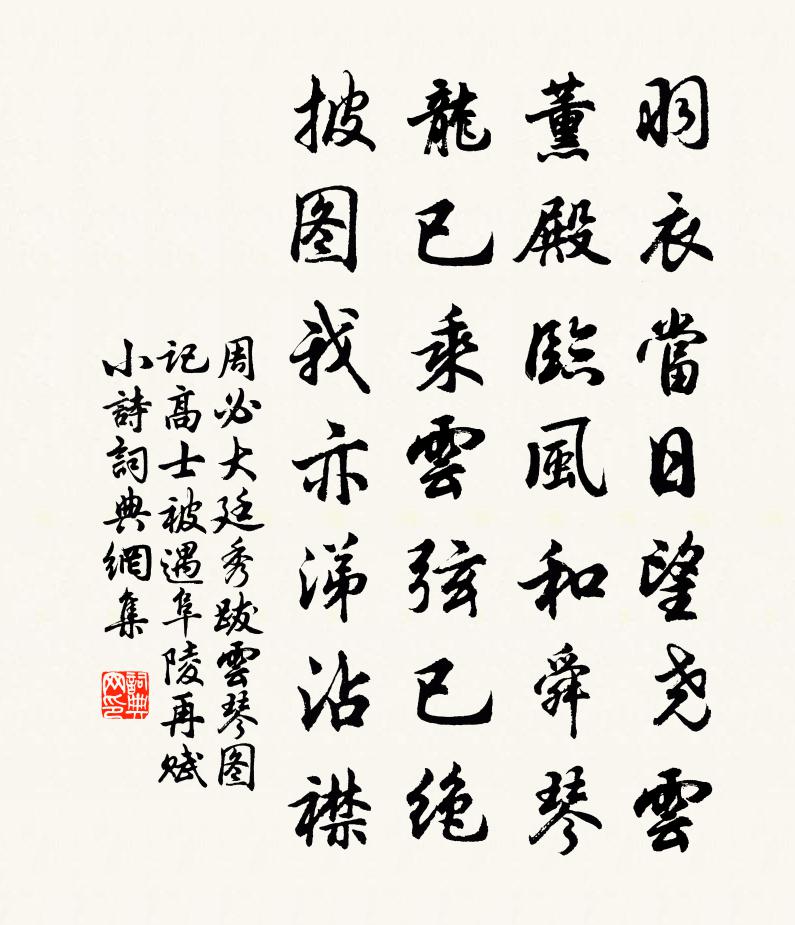 羽衣當日望尧雲
薰殿臨風和舜琴
龍已乘雲弦已绝
披图我亦涕沾襟
周必大廷秀跋雲琴图
记高士被遇阜陵再赋
小詩詞典網集
詞典网印